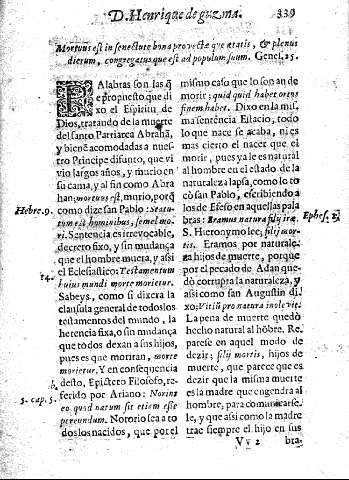 D. Henrique de guzma. 339
Mortuus est in senectute bona provectæque ætatis, & plenus
dierum, congregatusque est ad populum suum. Genes. 25.
PAlabras son las q̃
e proposito que di
xo el Espiritu de
Dios, tratando de la muerte
del santo Patriarca Abrahã,
y bienē acomodadas a nuef
tro Principe difunto, que vi
vio largos años, y murio en
su cama, y al fin como Abra
han; mortuus est, murio, porq̃
Hebre. 9.
como dize san Pablo: Statu-
tum est hominibus, semel mo-
ri. Sentencia es irrevocable,
decreto fixo, y sin mudança
que el hombre muera, y assi
14.
el Eclesiastico: Testamentum
huius mundi morte morietur.
Sabeys, como si dixera la
clausula general de todos los
testamentos del mundo, la
herencia fixa, o sin mudança
que todos dexan a sus hijos,
pues es que moriran, morte
morietur. Y en consequencia
b.
desto, Epicteto Filosofo, re-
3. cap. 5.
ferido por Ariano:
eo quod natum sit etiam esse
pereundum. Notorio sea a to
dos los nacidos, que por el
mismo caso que lo son an de
morir; quid quid habet ortus
finem habet. Dixo en la mis
ma sentencia Estacio, todo
lo que nace se acaba, ni es
mas cierto el nacer que el
morir, pues ya le es natural
al hombre en el estado de la
naturaleza lapsa, como lo to
có san Pablo, escribiendo a
los de Efeso en aquellas pala
Ephes. 2.
bras: Eramus natura filij iræ.
S. Hieronymo lee; filij mor-
tis. Eramos por naturale-
za hijos de muerte, porque
por el pecado de Adan que-
dò corrupta la naturaleza, y
assi como san Augustin di-
xo; Vitiũ pro natura inolevit.
La pena de muerte quedò
hecho natural al hõbre. Re
parese en aquel modo de
dezir; filij mortis, hijos de
muerte, que parece que es
dezir que la misma muerte
es la madre que engendra al
hombre, para comunicarse-
le, y que assi como la madre
trae siempre el hijo en sus
Vv 2 bra-